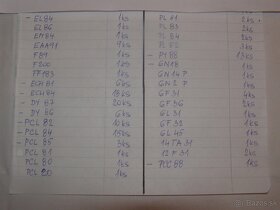 - EL84 1ks
EL86 1ks
EM84 1ks
EAA91 9ks
F89 1ks
F200 1ks
FF183 1ks
- ECH81 6ks
- ECH84 18ks
- DY87 20ks
- DY86 6ks
- PCL82 10ks
- PCL84 15ks
- PCL85 3ks
- PCL81 1ks
PCL80 1ks
PCL20 1ks
PL81 2ks
PL83 3ks
PL84 2ks
PL82 3ks
- PY88 13ks
- GN18 1ks
GN14P 1ks
GN2P 1ks
GF31 4ks
GF36 2ks
GL31 1ks
6F32 1ks
GL45 1ks
14TA31 1ks
12F31 2ks
- PCC88 1ks
bazar.sk